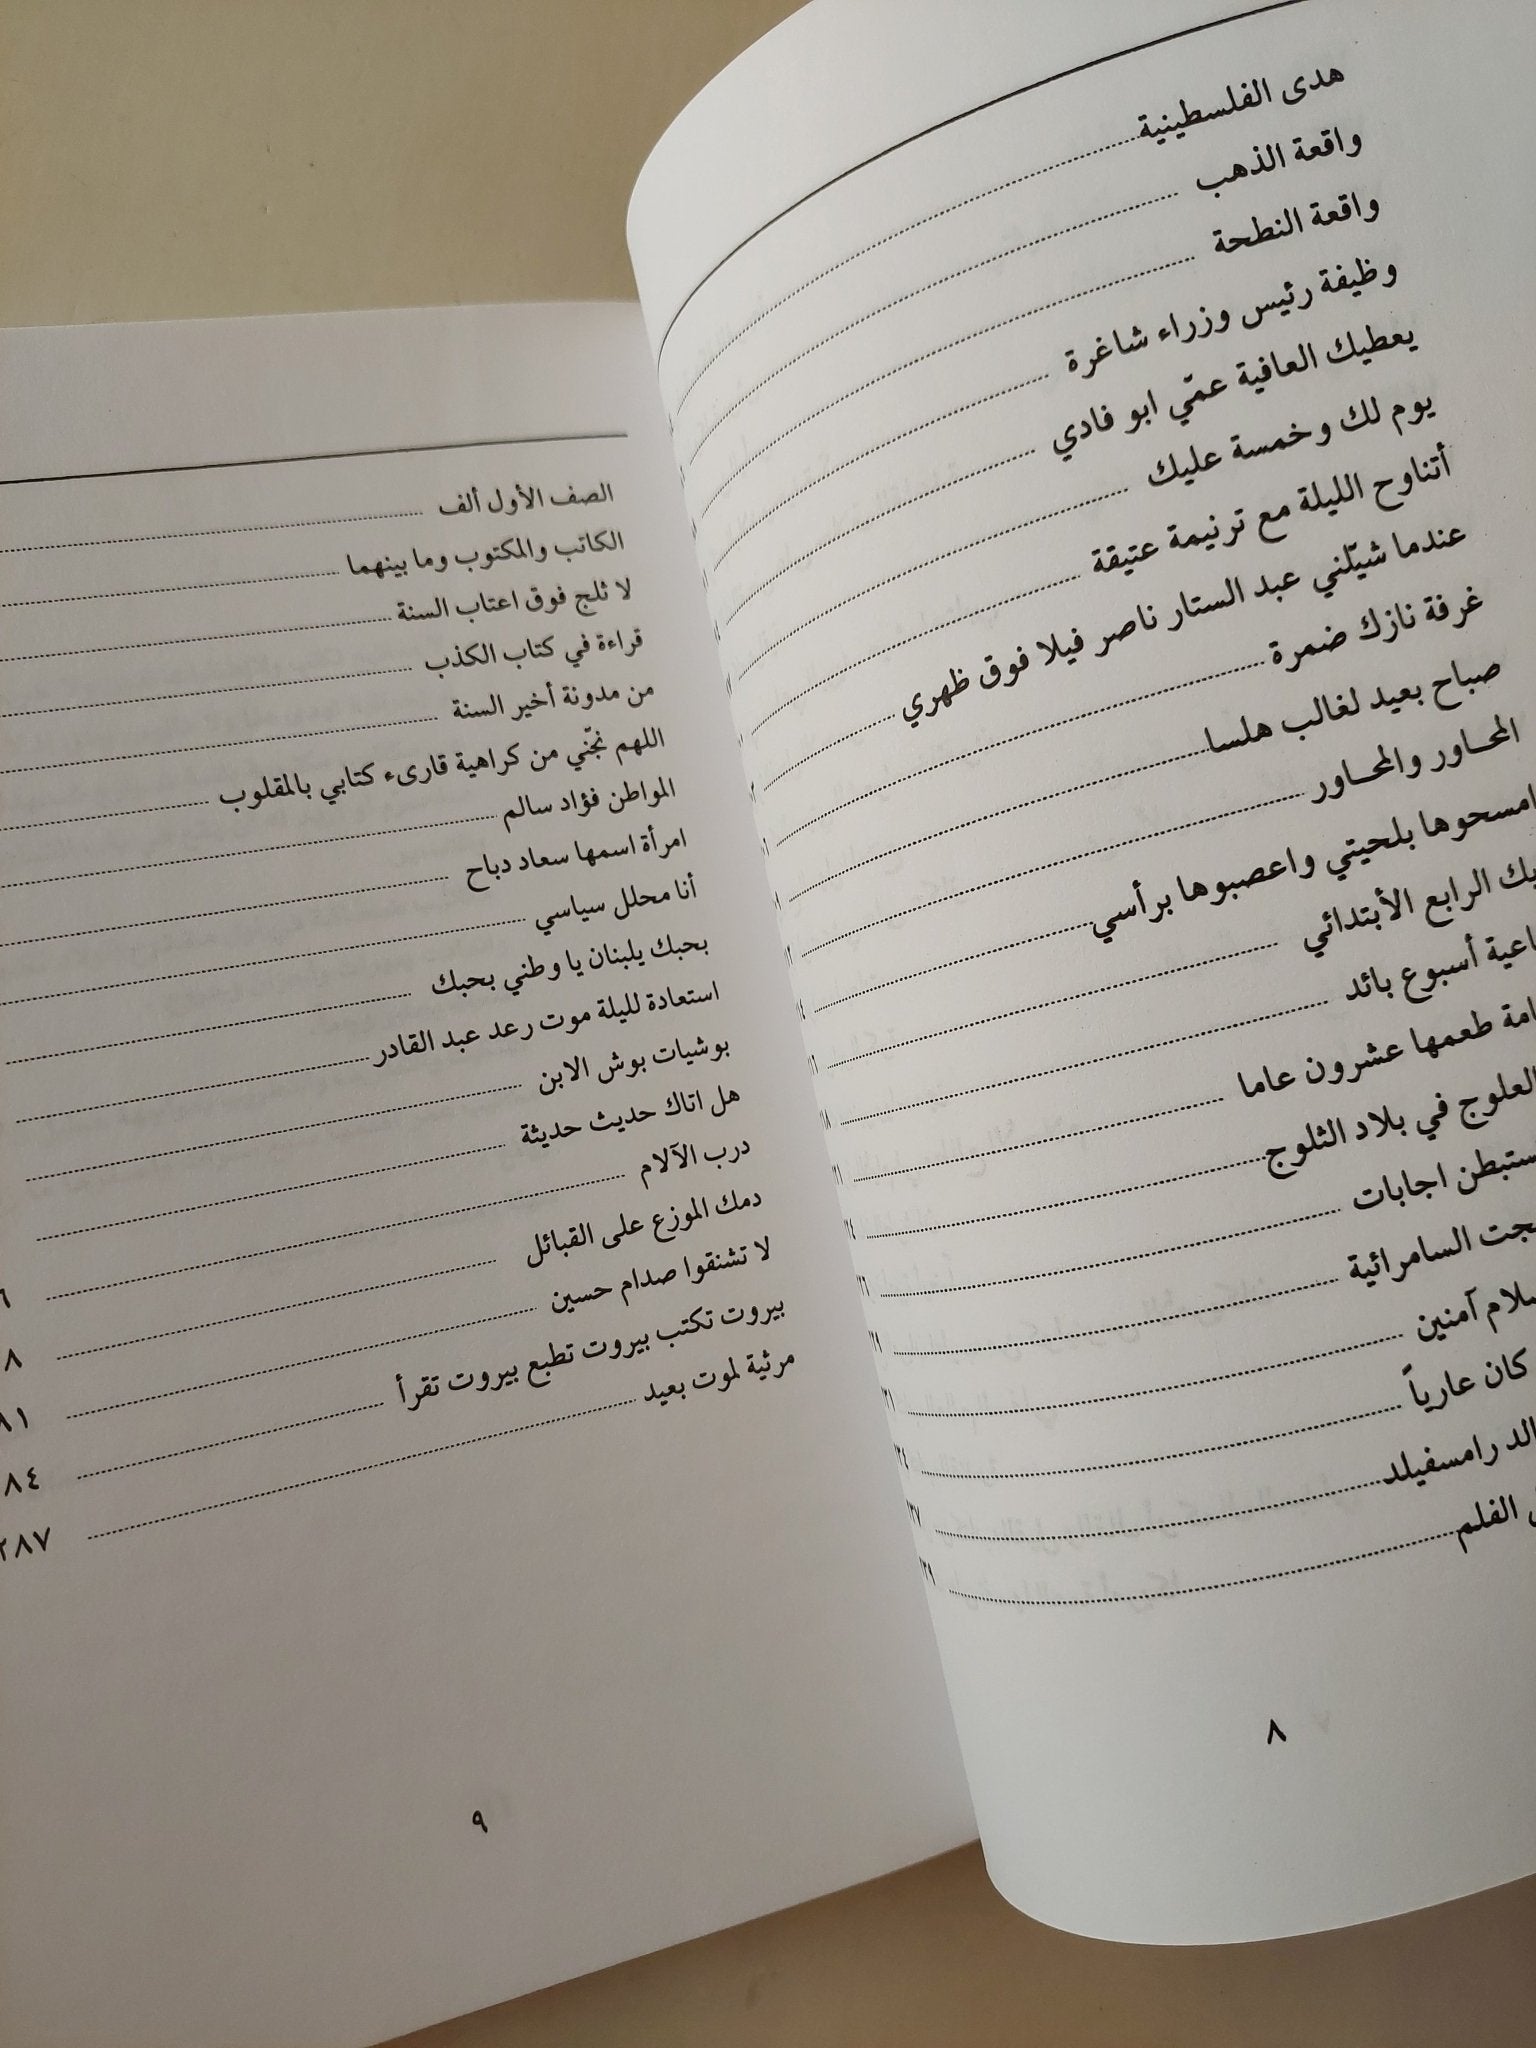 هدى الفلسطينية
واقعة الذهب
واقعة النطحة
وظيفة رئيس وزراء شاغرة
يعطيك العافية عمّي ابو فادي
يوم لك وخمسة عليك
أتناوح الليلة مع ترنيمة عتيقة
عندما شيّلني عبد الستار ناصر فيلا فوق ظهري
غرفة نازك ضمرة
صباح بعيد لغالب هلسا
المحاور والمحاور
امسحوها بلحيتي واعصبوها برأسي ١١٤
الرابع الأبتدائي ١١٦
أسبوع بائد ١١٨
طعمها عشرون عاما ١٢١
العلوج في بلاد الثلوج
اجابات ١٢٦
السامرائية ١٢٩
آمنين ١٣١
كان عارياً ١٣٤
رامسفيلد ١٣٧
الفلم ١٣٩
٨
الصف الأول ألف
الكاتب والمكتوب وما بينهما
لا ثلج فوق اعتاب السنة
قراءة في كتاب الكذب
من مدونة أخير السنة
اللهم نجّني من كراهية قارىء كتابي بالمقلوب
المواطن فؤاد سالم
امرأة اسمها سعاد دباح
أنا محلل سياسي
بحبك يلبنان يا وطني بحبك
استعادة لليلة موت رعد عبد القادر
بوشيات بوش الابن
هل اتاك حديث حديثة
درب الآلام
دمك الموزع على القبائل
لا تشنقوا صدام حسين
بيروت تكتب بيروت تطبع بيروت تقرأ
مرثية لموت بعيد ٢٨٧
٩